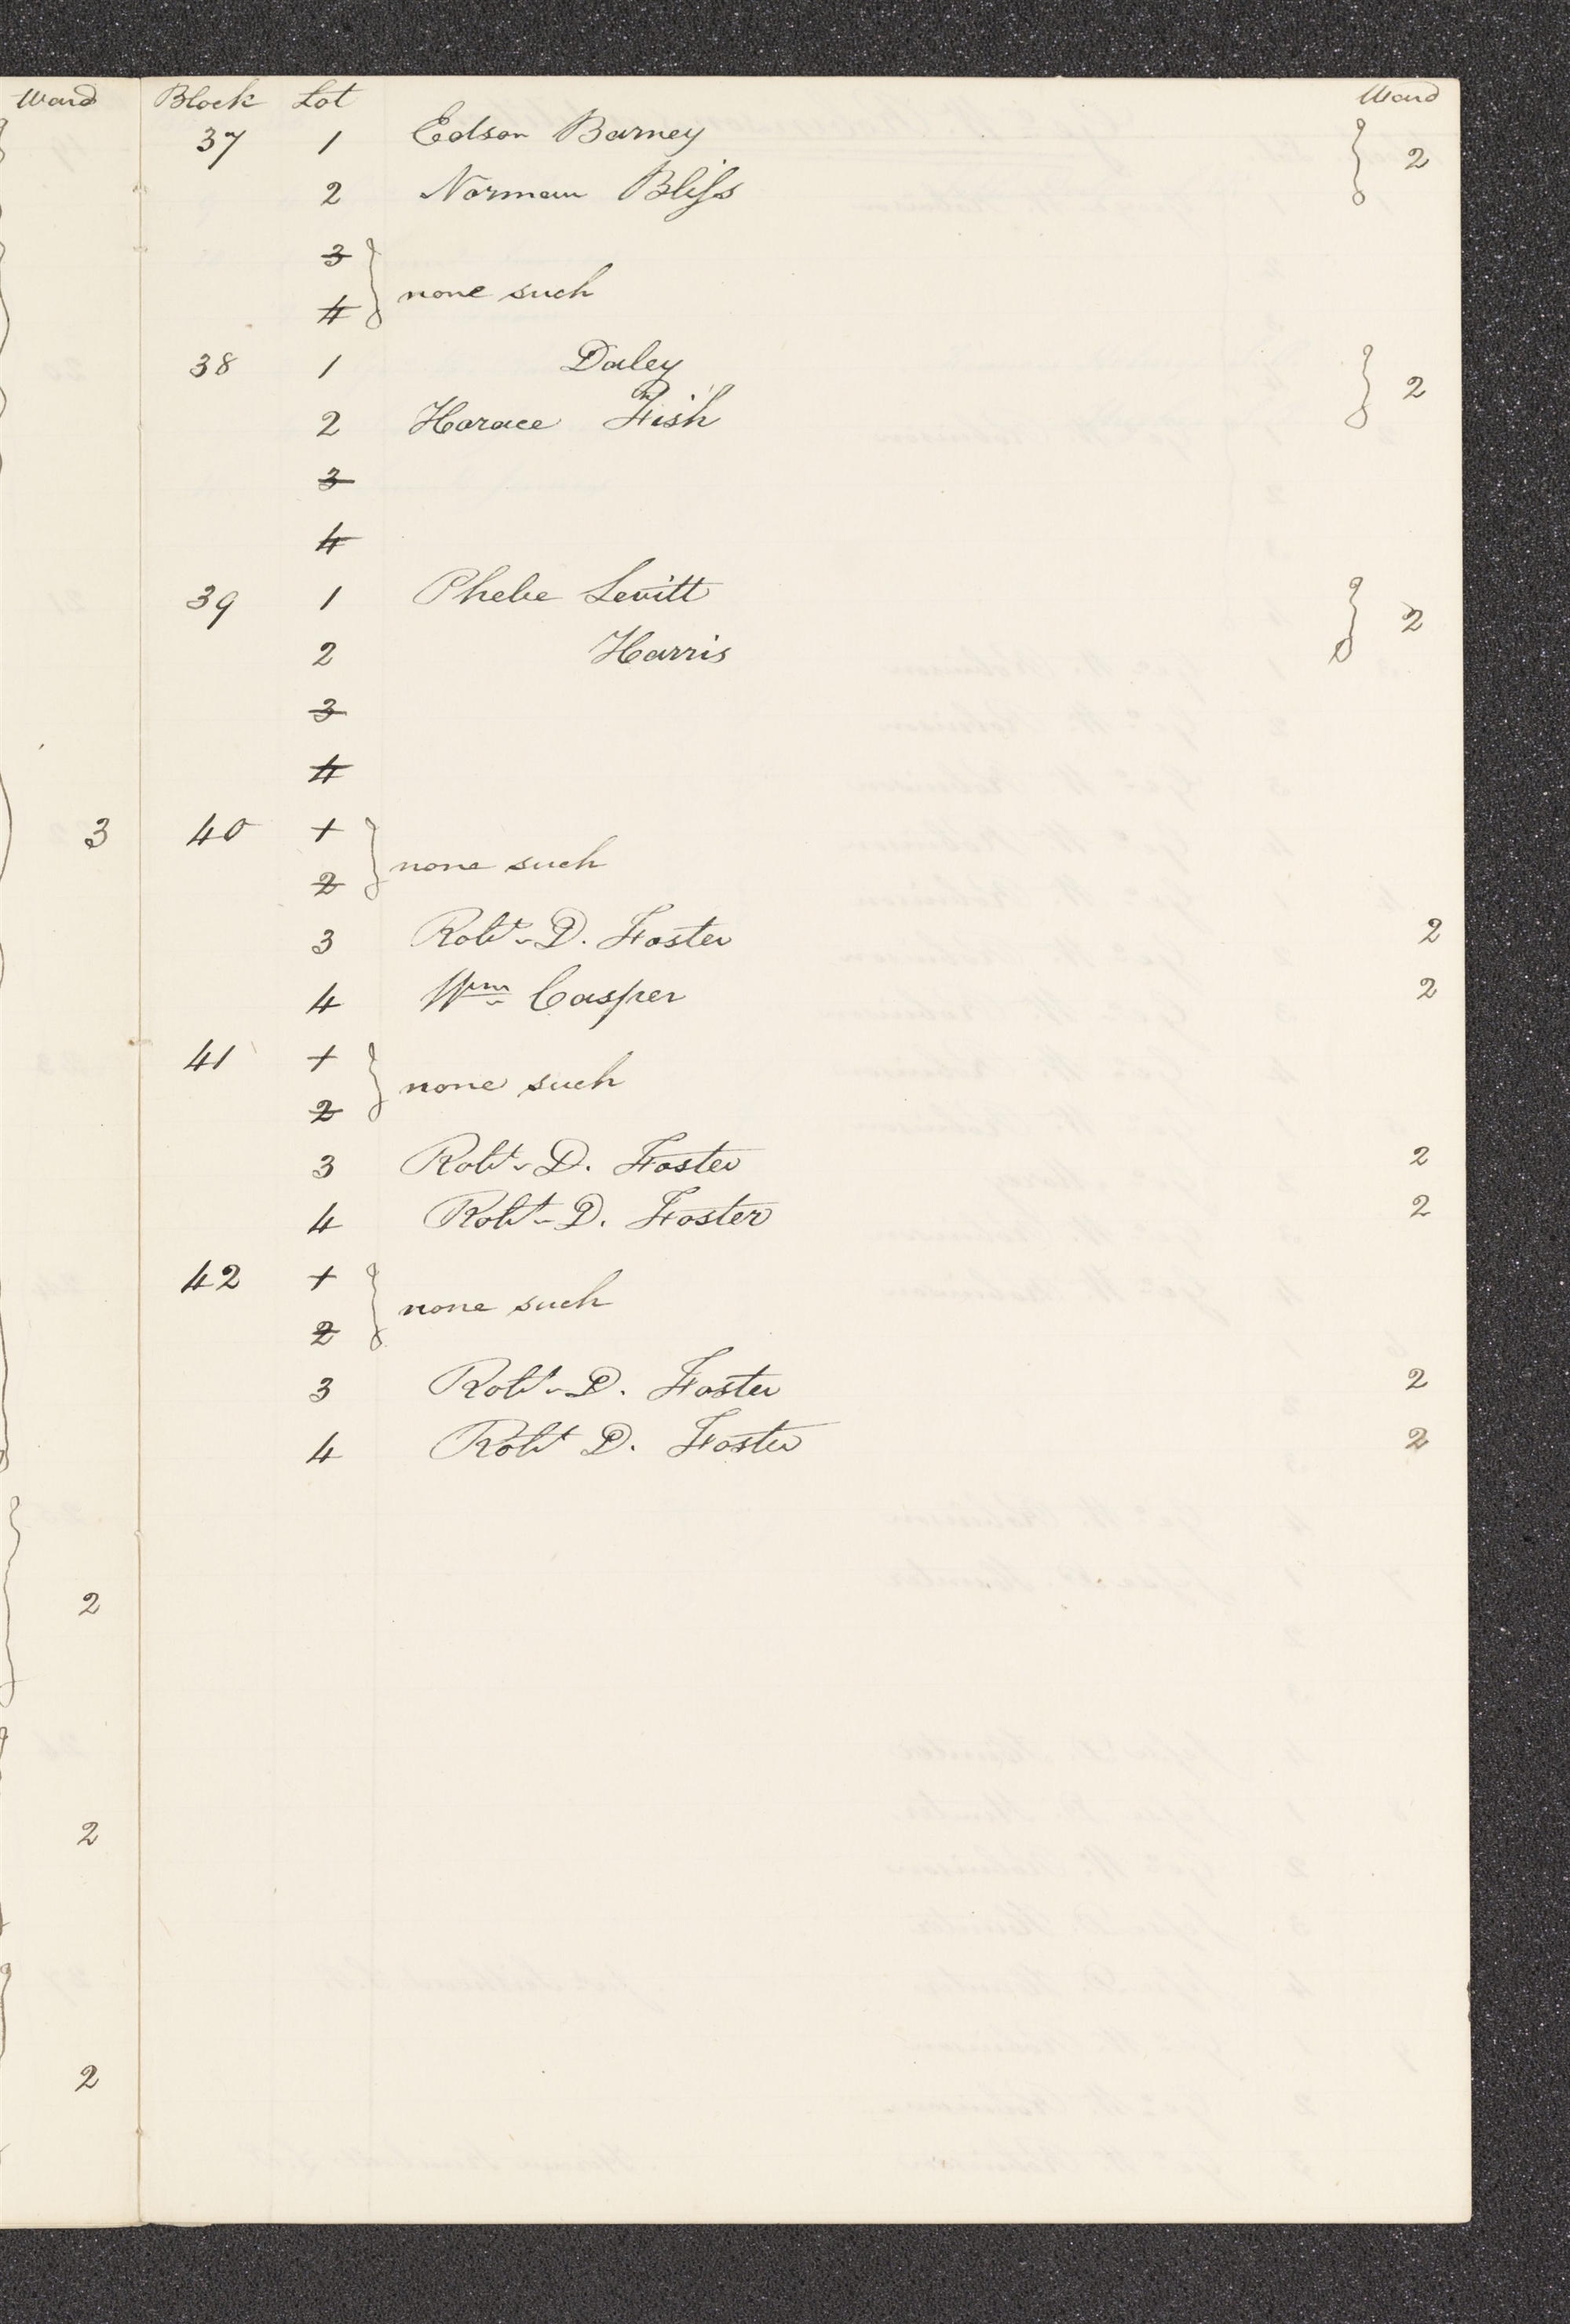 Ward Block Lot Ward
37 1 Edson Barney 2
2 Norman Bliss
3
4 none such
38 1 Daley 2
2 Horace Fish
3
4
39 1 Phebe Levitt 2
2 Harris
3
4
3 40 1
2 none such
3 Robt. D. Foster 2
4 Wm. Casper 2
41 1
2 none such
3 Robt. D. Foster 2
4 Robt. D. Foster 2
42 1
2 none such
3 Robt. D. Foster 2
4 Robt D. Foster 2
2
2
2